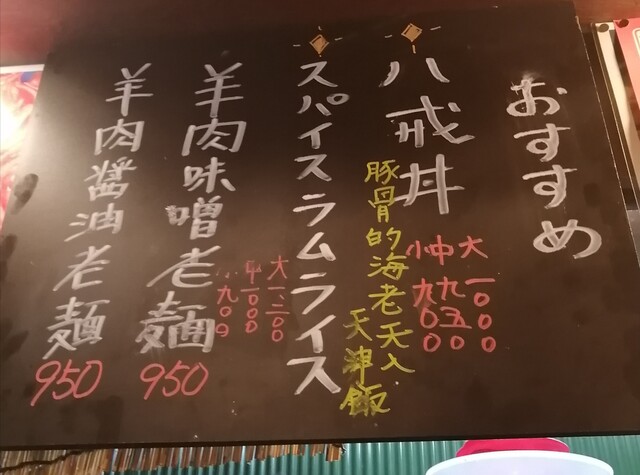 おすすめ
八戒丼
大一〇〇〇
中九五〇
小九〇〇
豚骨的海老天入
天津飯
スパイスラムライス
大一二〇〇
中一〇〇〇
小九〇〇
羊肉味噌老麺
950
羊肉醤油老麺
950